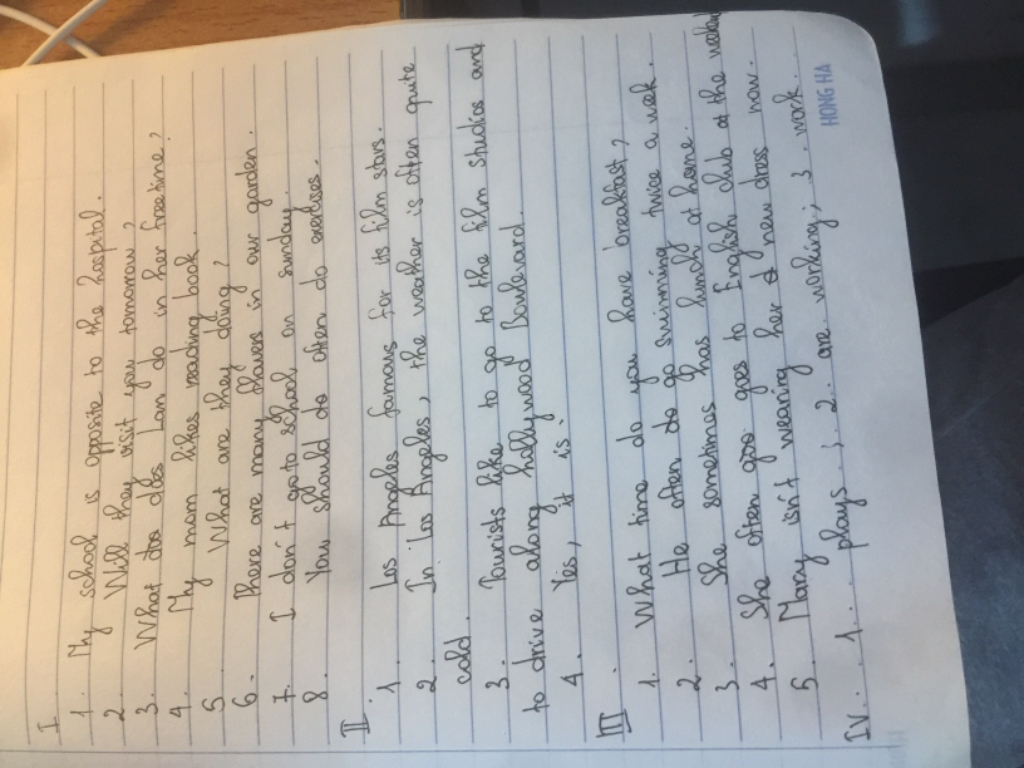 I
1. My school is opposite to the hospital.
2. Will they visit you tomorrow?
3. What do does Lan do in her free time?
4. My mom likes reading book.
5. What are they doing?
6. There are many flowers in our garden.
7. I don't go to school on sunday.
8. You should do often do exercises.
II
1. Los Angeles famous for its film stars.
2. In Los Angeles, the weather is often quite
cold.
3. Tourists like to go to the film studios and
to drive along hollywood Boulevard.
4. Yes, it is.
III.
1. What time do you have breakfast?
2. He often do go swimming twice a week.
3. She sometimes has lunch at home.
4. She often goes to English club at the
5. Mary isn't wearing her new dress now.
IV. 1. plays ; 2. are working; 3. work.
HONG HA